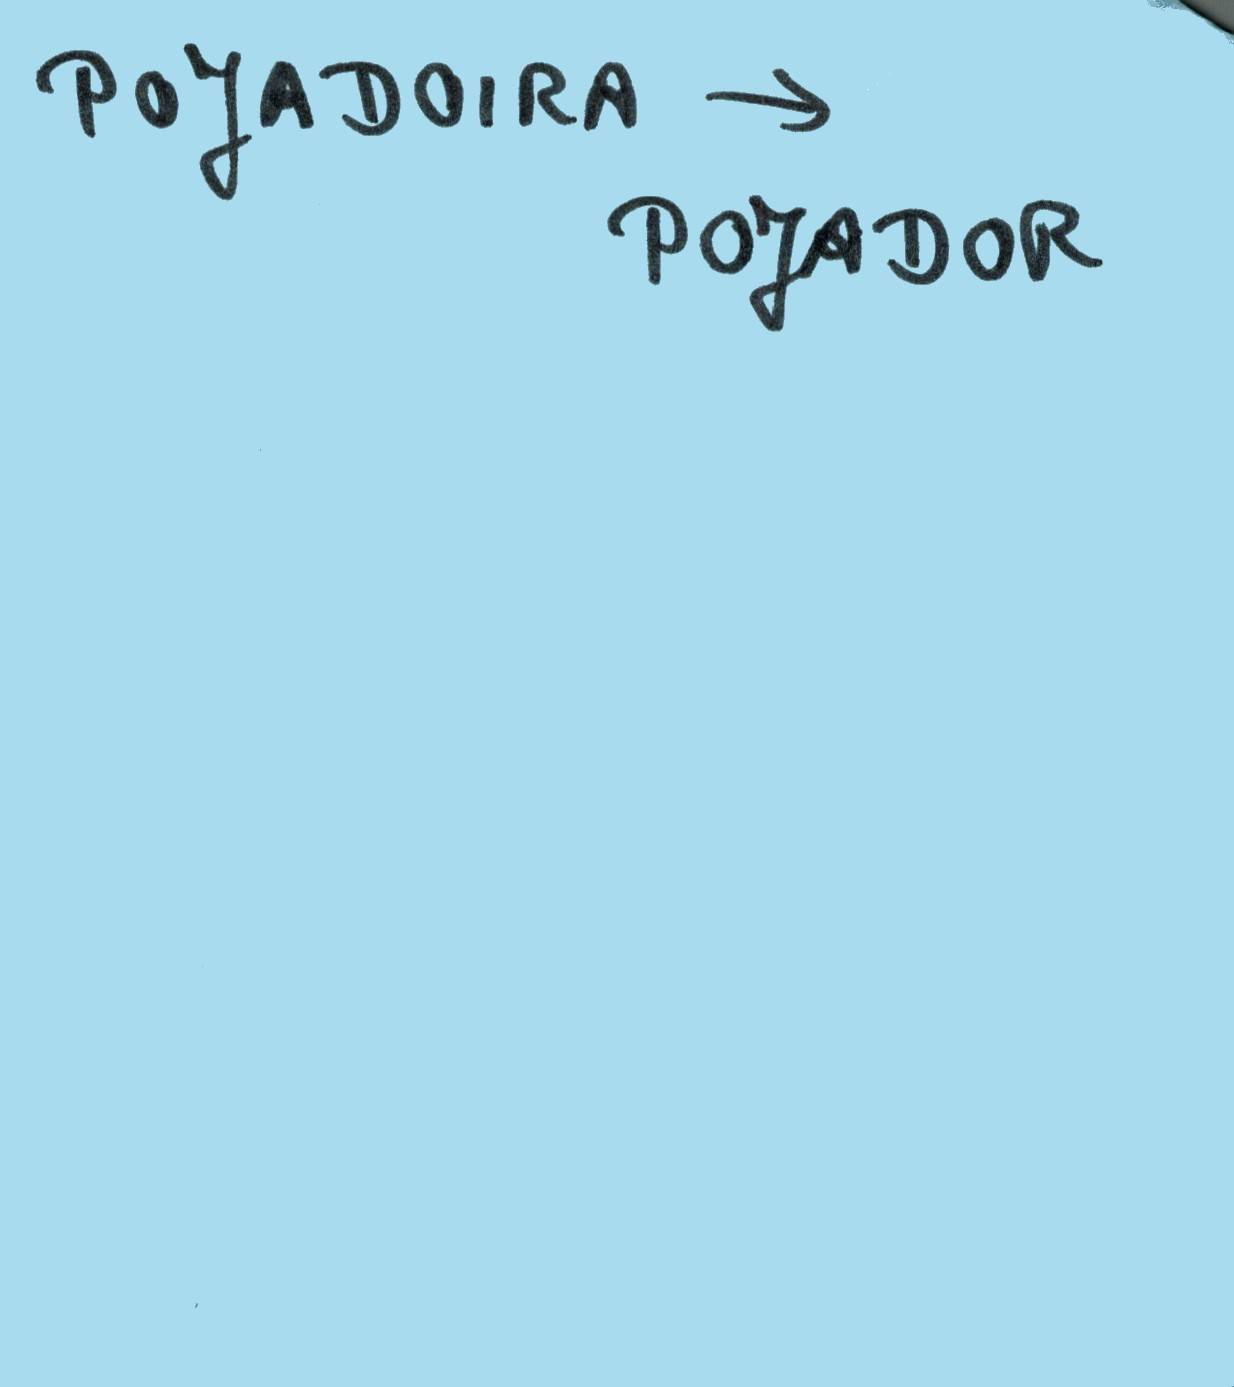 POJADOIRA →
POJADOR